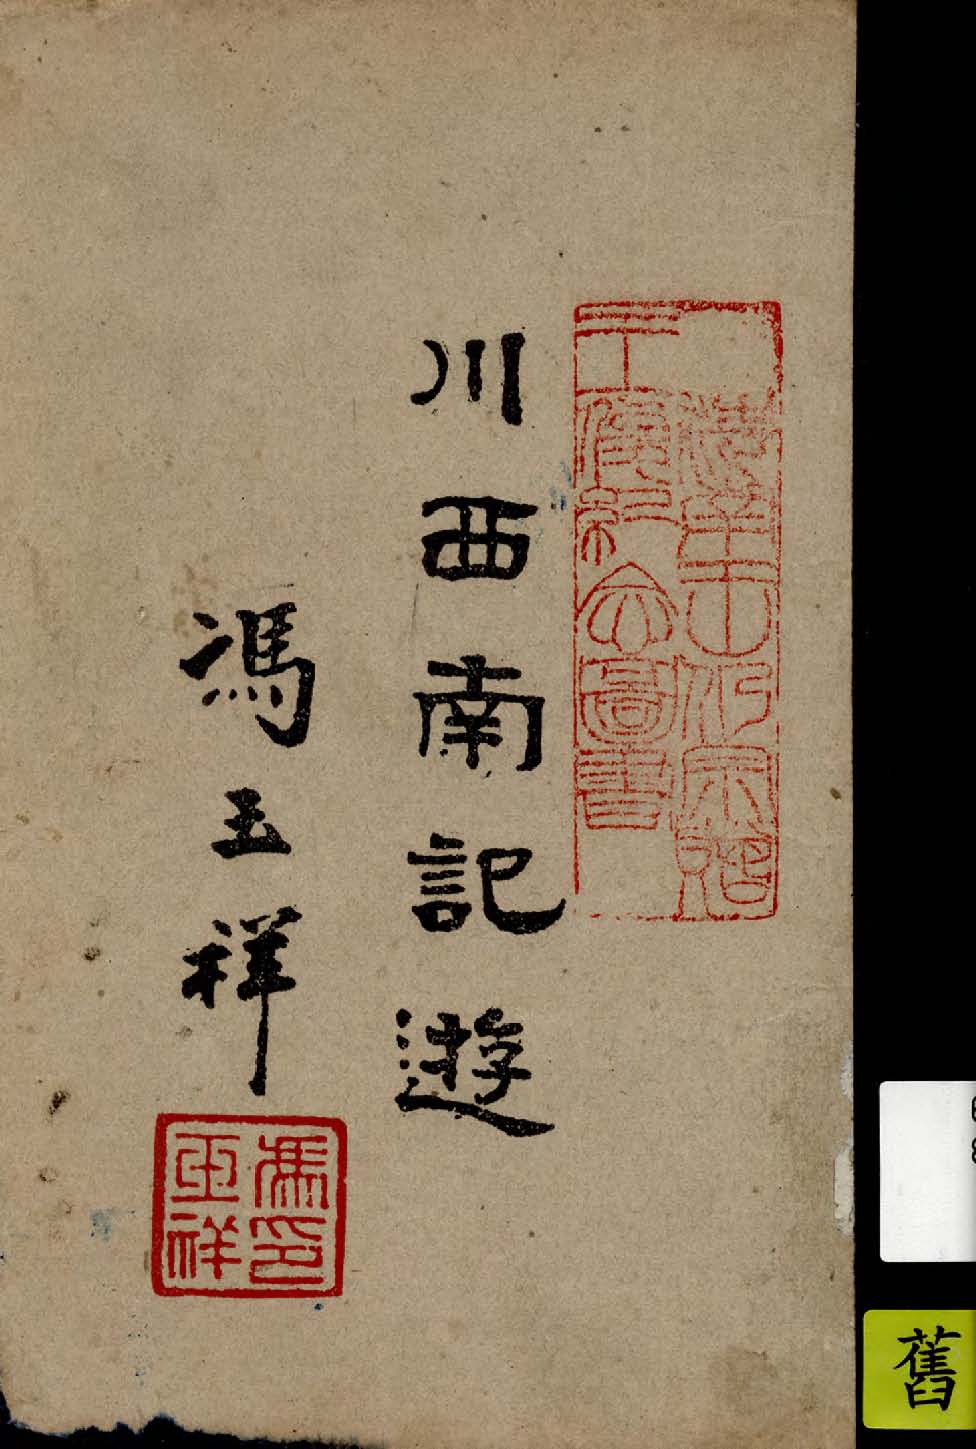 圖書
川西南記遊
馮玉祥
馮印
玉祥
舊